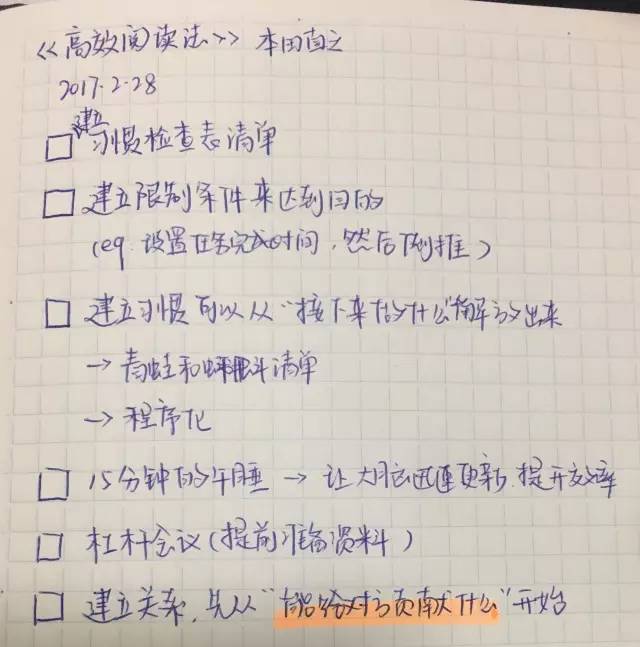 《高效阅读法》 本田直之
2017.2.28
□ 建立习惯检查表清单
□ 建立限制条件来达到目的
(eg. 设置任务完成时间，然后倒推)
□ 建立习惯可以从“接下来做什么”解放出来
→ 青蛙和蝌蚪清单
→ 程序化
□ 15分钟的午睡 → 让大脑迅速更新，提升效率
□ 杠杆会议(提前准备资料)
□ 建立关系，先从“能给对方贡献什么”开始